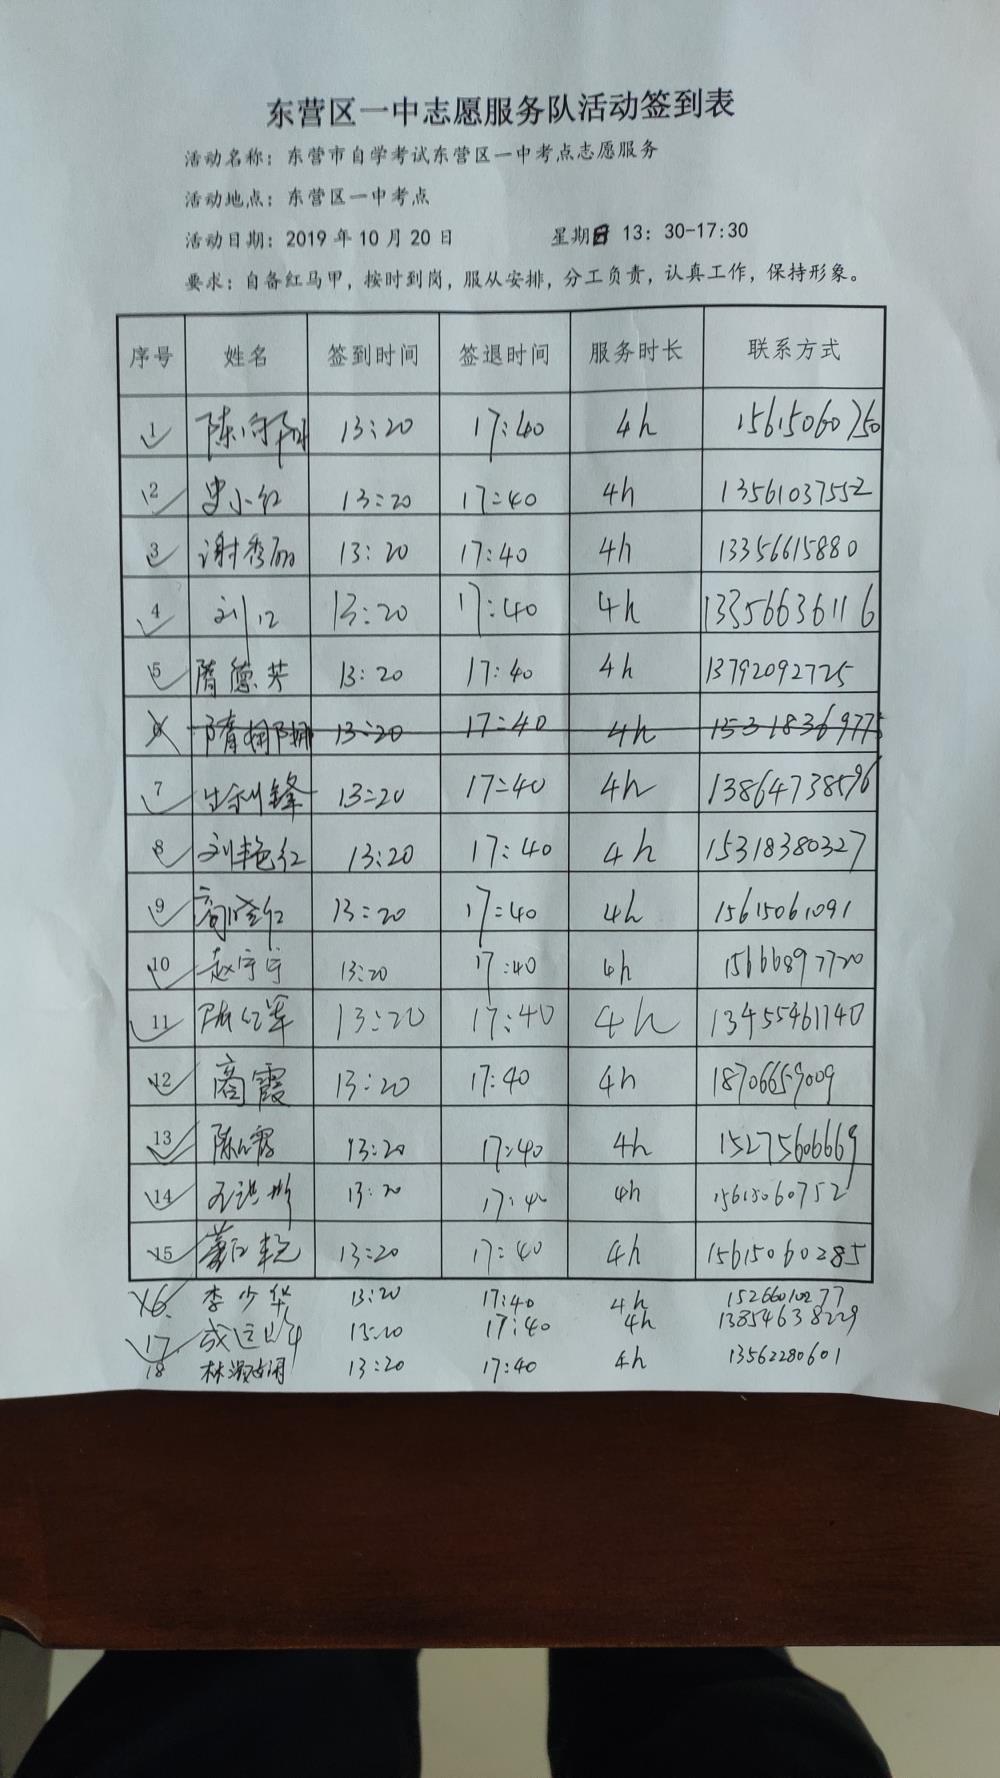 东营区一中志愿服务队活动签到表
活动名称：东营市自学考试东营区一中考点志愿服务
活动地点：东营区一中考点
活动日期：2019 年 10 月 20 日 星期日 13：30-17:30
要求：自备红马甲，按时到岗，服从安排，分工负责，认真工作，保持形象。
序号 姓名 签到时间 签退时间 服务时长 联系方式
1 13:20 17:40 4h 15615060750
2 史小红 13:20 17:40 4h 13561037552
3 谢秀丽 13:20 17:40 4h 13356615880
4 13:20 17:40 4h 13356636116
5 隋德芳 13:20 17:40 4h 13792092725
6 13:20 17:40 4h 15318369775
7 13:20 17:40 4h 13864738596
8 刘艳红 13:20 17:40 4h 15318380327
9 13:20 17:40 4h 15615061091
10 赵宁宁 13:20 17:40 4h 15666897720
11 13:20 17:40 4h 13455461740
12 商霞 13:20 17:40 4h 18706659009
13 13:20 17:40 4h 15275606669
14 13:20 17:40 4h 15615060752
15 13:20 17:40 4h 15615060285
16. 李少华 13:20 17:40 4h 15266010277
17. 17:40 4h 13854638229
18 13:20 17:40 4h 13562280601